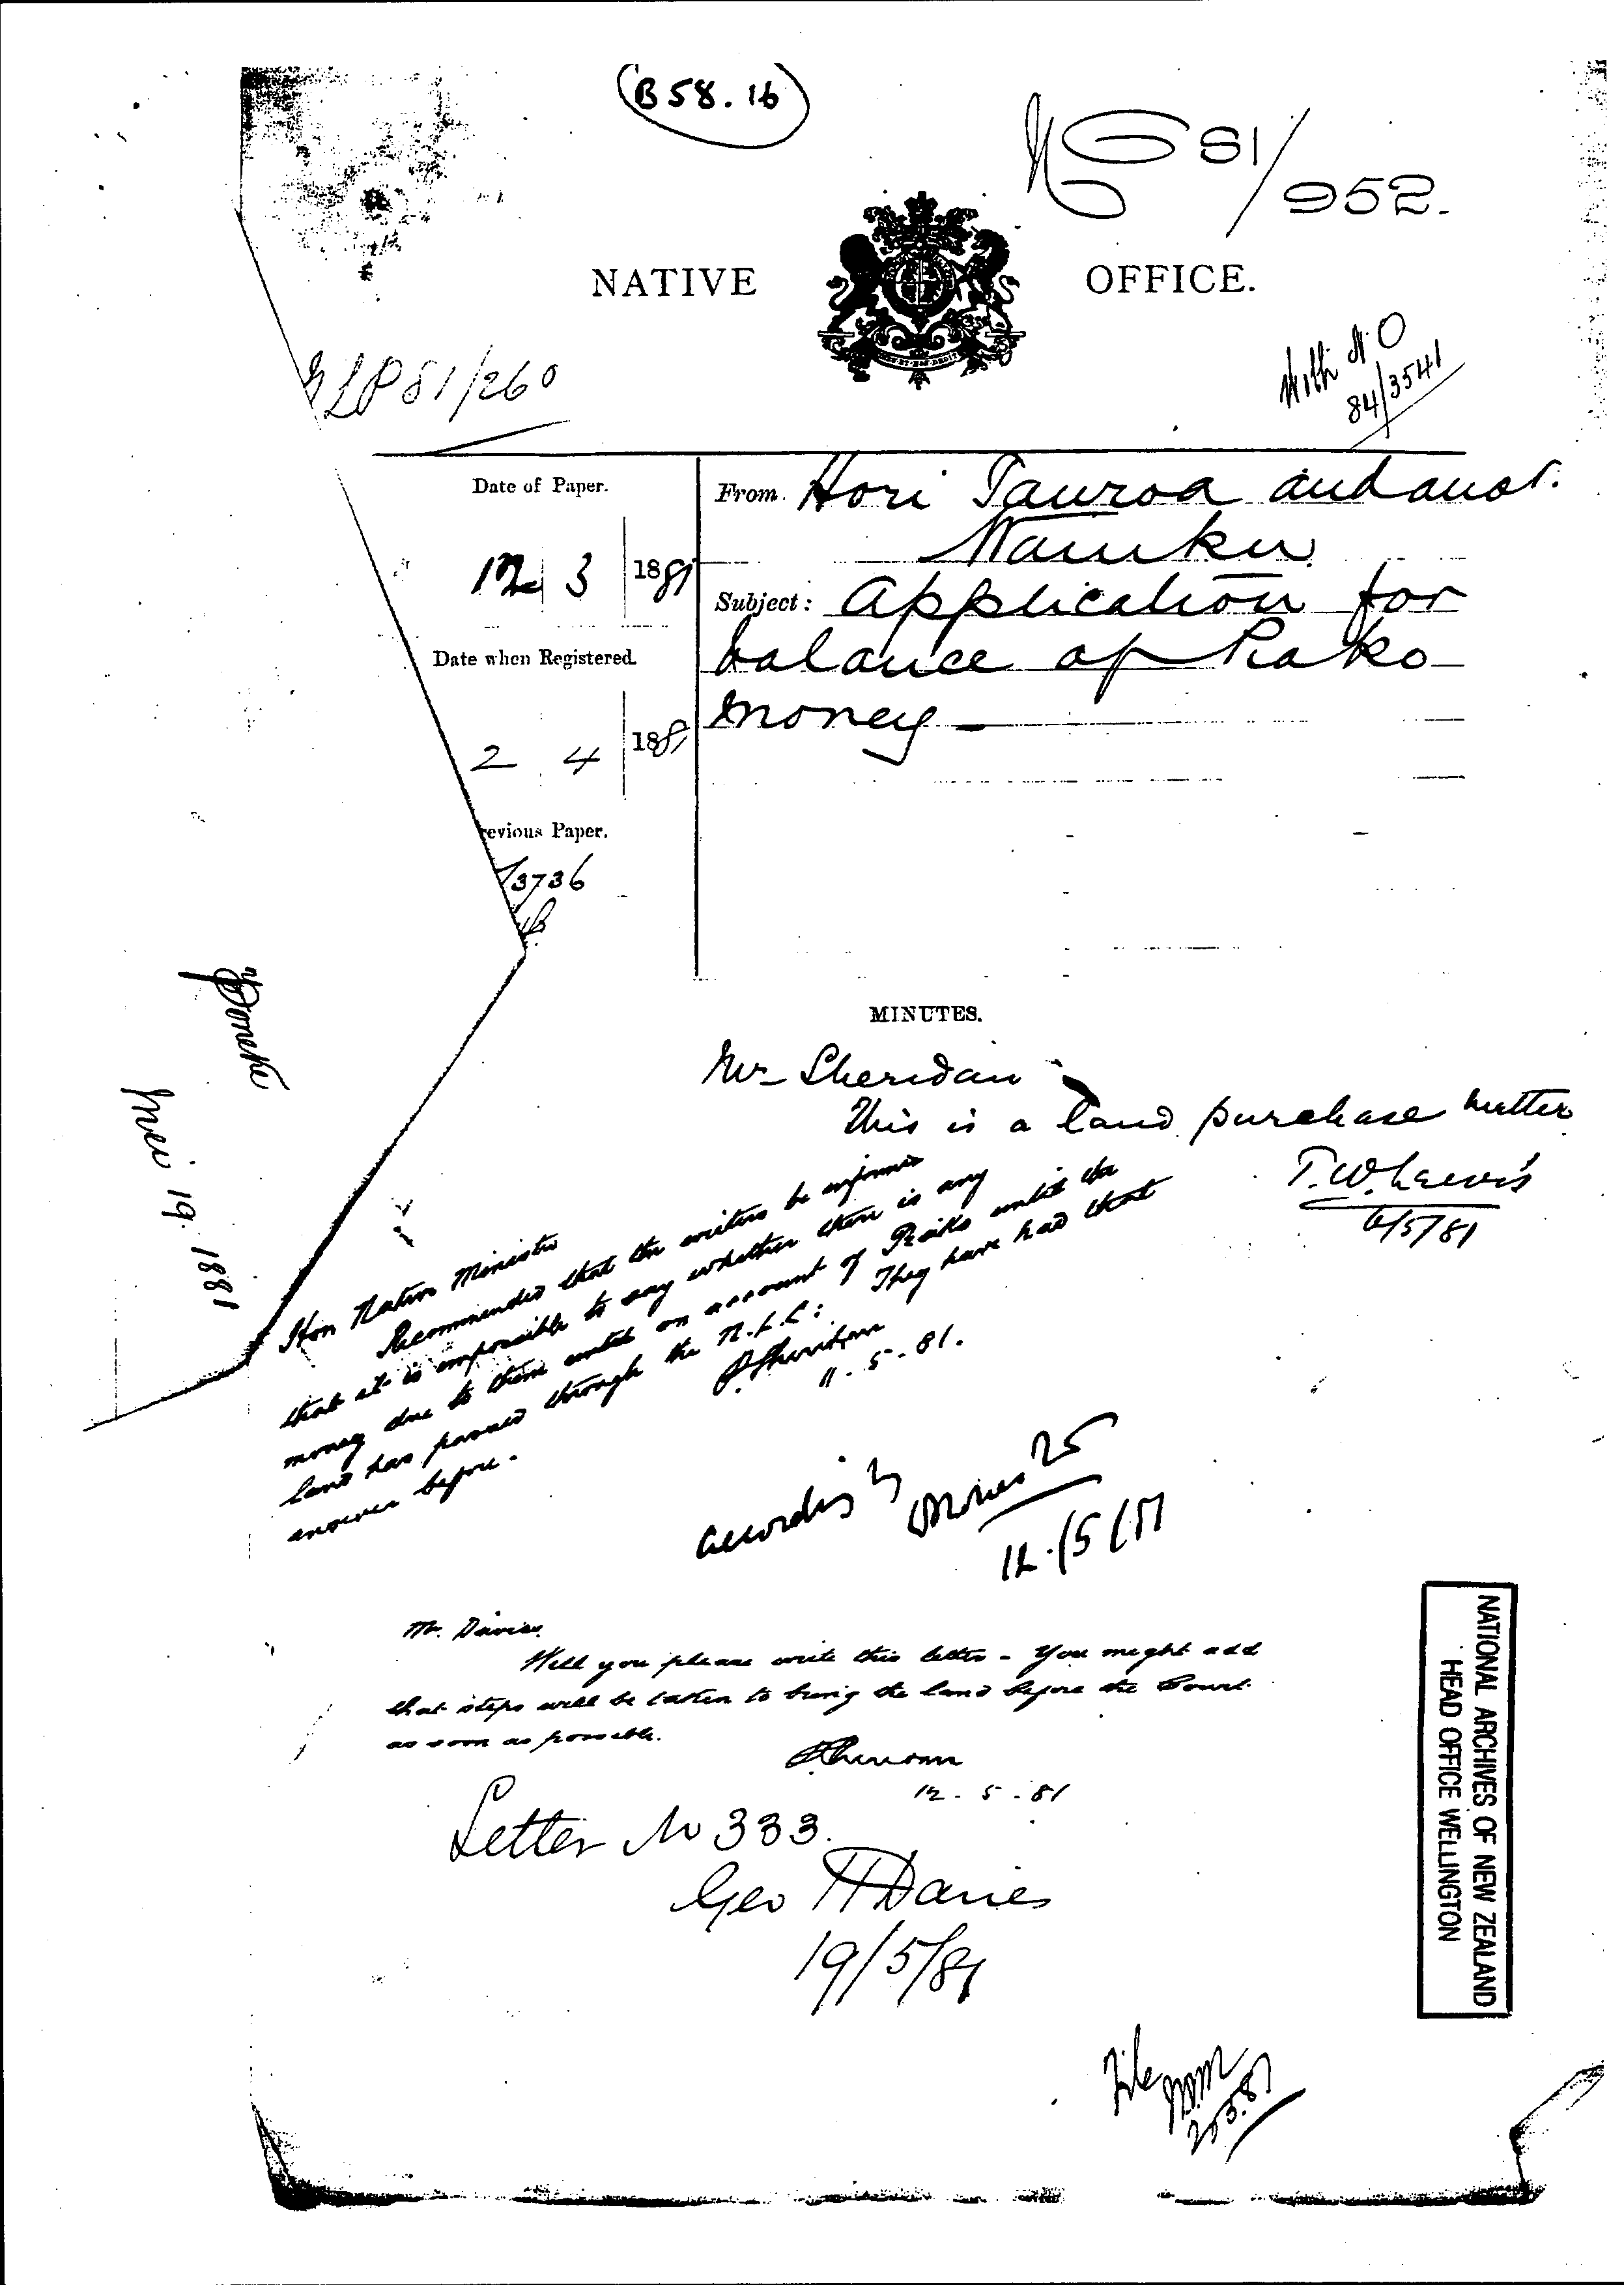 B 58. 16
NO 81/952.
NATIVE OFFICE.
NLP 81/260
With N.O
84/3541
Date of Paper.
12 3 1881
Date when Registered.
2 4 1881
evious Paper.
/3736
From. Hori Tauroa and anor.
Waiuku
Subject: Application for
balance of Rako
money -
MINUTES.
Mr Sheridan
This is a land purchase matter
T.W. Lewis
6/5/81
Hon Native Minister
Recommended that the writers be informed
that it is impossible to say whether there is any
money due to them until on account of Raiko until the
land has passed through the N.L.C: They have had that
answer before.
P Sheridan
11. 5. 81.
Accordingly
12/5/81
Mr. Davies.
Will you please write this letter - You might add
that steps will be taken to bring the land before the Court
as soon as possible.
P Sheridan
12. 5. 81
Letter No 333.
Geo H Davies
19/5/81
File
Mei 19. 1881
NATIONAL ARCHIVES OF NEW ZEALAND
HEAD OFFICE WELLINGTON